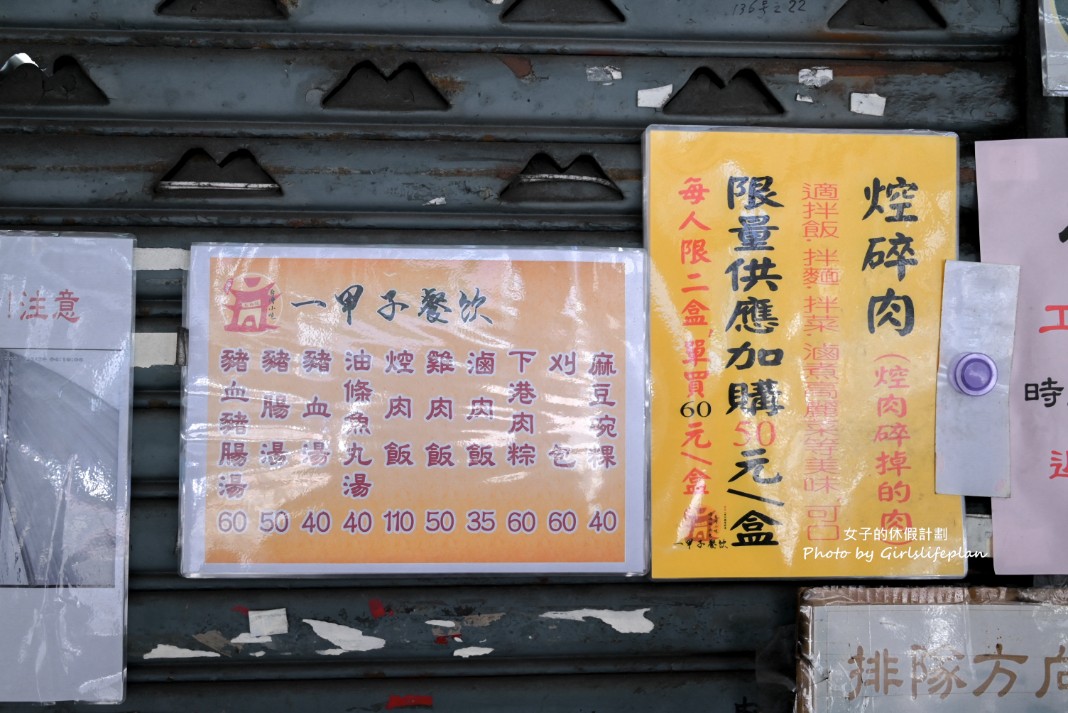 136号之22
注意
一甲子餐飲
麻豆碗粿 40
刈包 60
下港肉粽 60
滷肉飯 35
雞肉飯 50
焢肉飯 110
油條魚丸湯 40
豬血湯 40
豬腸湯 50
豬血豬腸湯 60
焢碎肉
(焢肉碎掉的肉)
適拌飯.拌麵.拌菜.滷煮高麗菜等美味可口
限量供應加購50元/盒
每人限二盒,單買60元/盒
一甲子餐飲
時
排隊方向
女子的休假計劃
Photo by Girlslifeplan